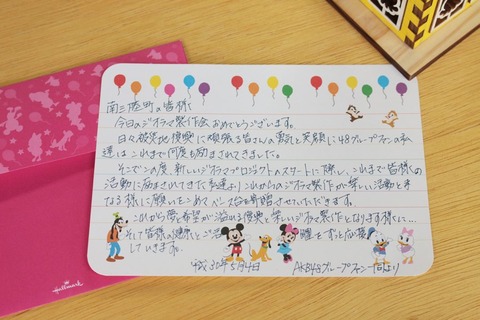 南三陸町の皆様へ
今日のジオラマ製作会おめでとうございます。
日々被災地復興に頑張る皆さんの勇気と笑顔に48グループファンの私
達はこれまで何度も励まされてきました。
そこでこの度、新しいジオラマプロジェクトのスタートに際し、これまで皆様の
活動に励まされてきた私達よりこれからのジオラマ製作が楽しい活動と
なる様に願いをこめてペンス台を寄贈させていただきます。
これから夢と希望が溢れる復興、楽しいジオラマ製作となります様に…
そして皆様の健康とご活躍をずっと応援
していきます。
平成30年5月4日
AKB48グループファン一同より
Hallmark